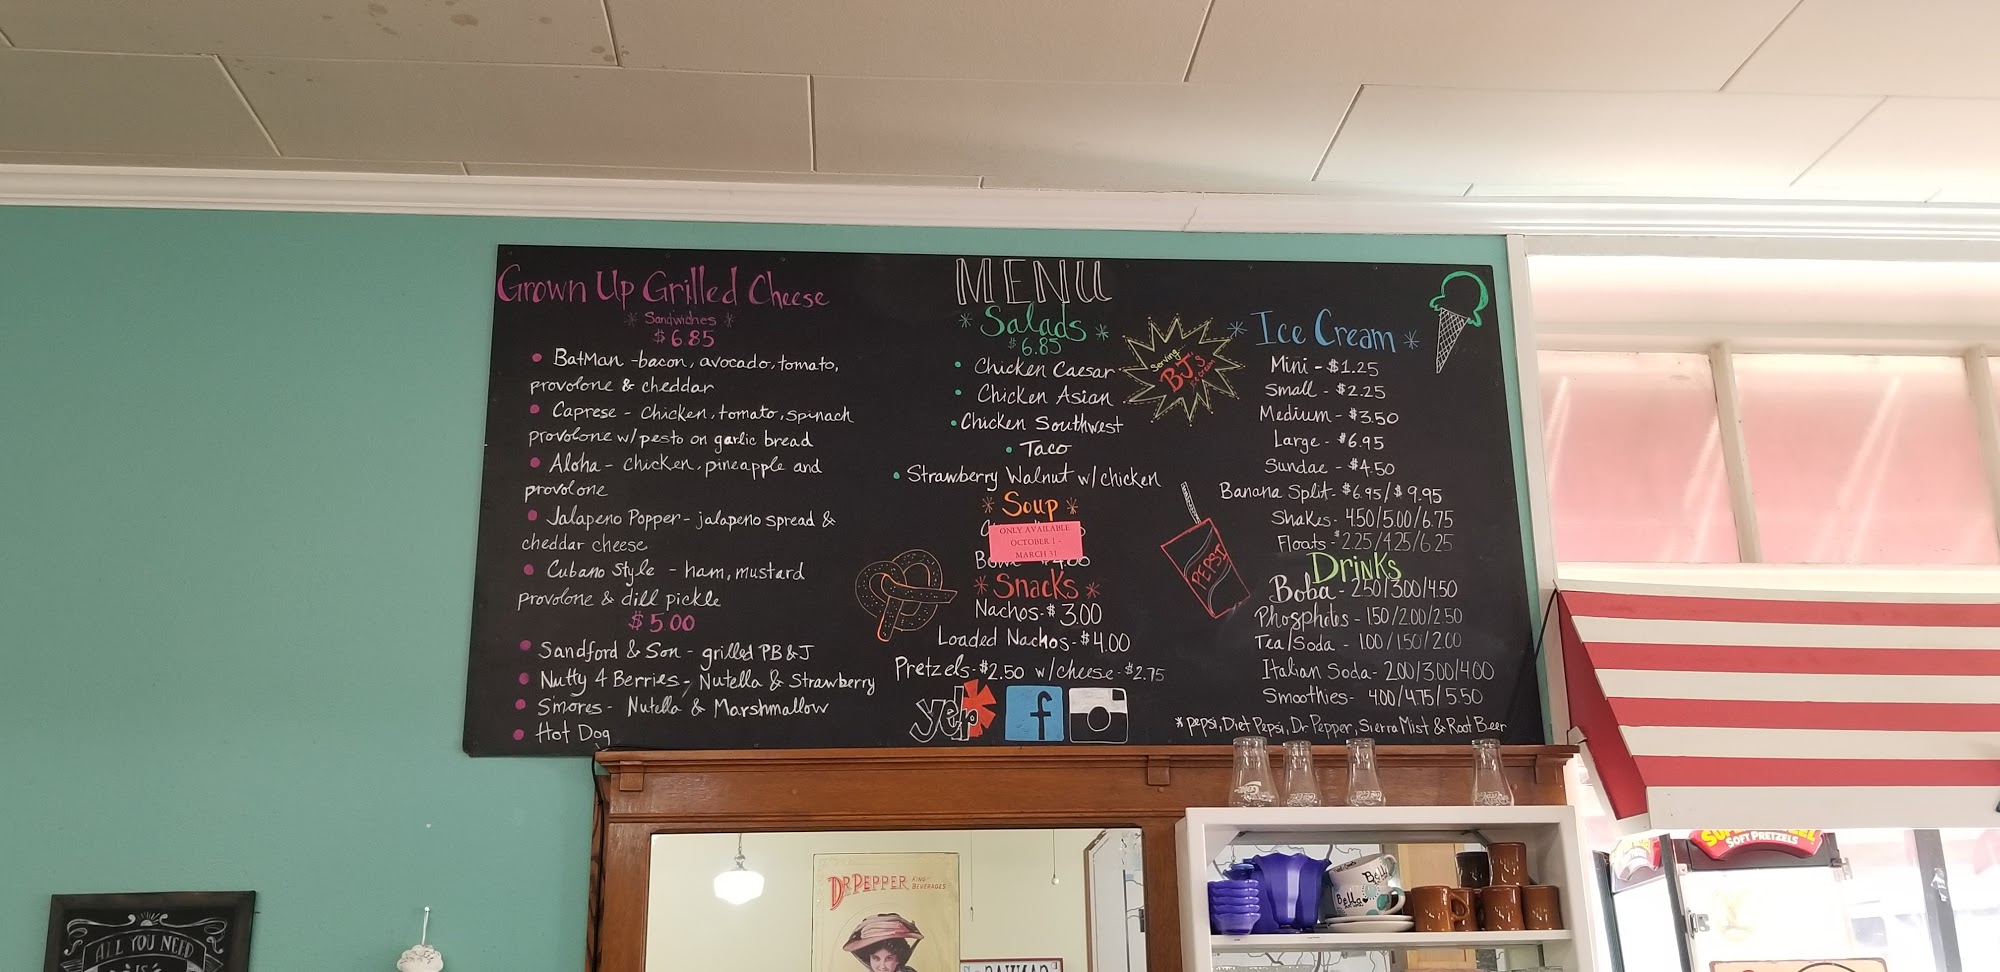 MENU
Grown Up Grilled Cheese
* Sandwiches *
$6.85
• BatMan - bacon, avocado, tomato,
provolone & cheddar
• Caprese - chicken, tomato, spinach
provolone w/pesto on garlic bread
• Aloha - chicken, pineapple and
provolone
• Jalapeno Popper - jalapeno spread &
cheddar cheese
• Cubano Style - ham, mustard
provolone & dill pickle
$5.00
• Sandford & Son - grilled PB&J
• Nutty 4 Berries, Nutella & Strawberry
• S'mores - Nutella & Marshmallow
• Hot Dog
* Salads *
$6.85
• Chicken Caesar
• Chicken Asian
• Chicken Southwest
• Taco
• Strawberry Walnut w/chicken
* Soup *
ONLY AVAILABLE
OCTOBER 1 -
MARCH 31
$4.00
* Snacks *
Nachos - $3.00
Loaded Nachos - $4.00
Pretzels - $2.50 w/cheese - $2.75
yelp
f
Serving
BJ's
Ice Cream
PEPSI
* Ice Cream *
Mini - $1.25
Small - $2.25
Medium - $3.50
Large - $6.95
Sundae - $4.50
Banana Split - $6.95/$9.95
Shakes - 4.50/5.00/6.75
Floats - $2.25/4.25/6.25
Drinks
Boba - 2.50/3.00/4.50
Phosphates - 1.50/2.00/2.50
Tea/Soda - 1.00/1.50/2.00
Italian Soda - 2.00/3.00/4.00
Smoothies - 4.00/4.75/5.50
* Pepsi, Diet Pepsi, Dr Pepper, Sierra Mist & Root Beer
SOFT PRETZELS
DR PEPPER
KING OF
BEVERAGES
Bella
ALL YOU NEED
IS